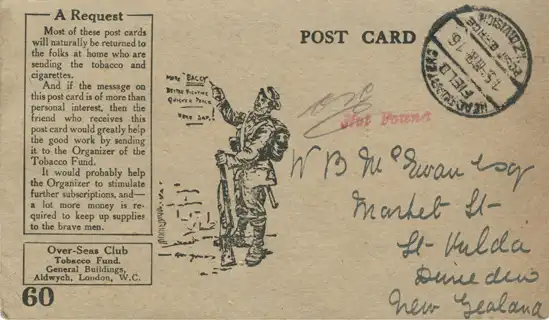 A Request
Most of these post cards
will naturally be returned to
the folks at home who are
sending the tobacco and
cigarettes.
And if the message on
this post card is of more than
personal interest, then the
friend who receives this
post card would greatly help
the good work by sending
it to the Organizer of the
Tobacco Fund.
It would probably help
the Organizer to stimulate
further subscriptions, and—
a lot more money is re-
quired to keep up supplies
to the brave men.
Over-Seas Club
Tobacco Fund.
General Buildings,
Aldwych, London, W.C.
60
MORE "BACCY"
BETTER FIGHTING
QUICKER PEACE
POST CARD
FIELD
HEADQUARTERS
Not Found
W B McEwan esqr
Market St
St Kilda
Dunedin
New Zealand